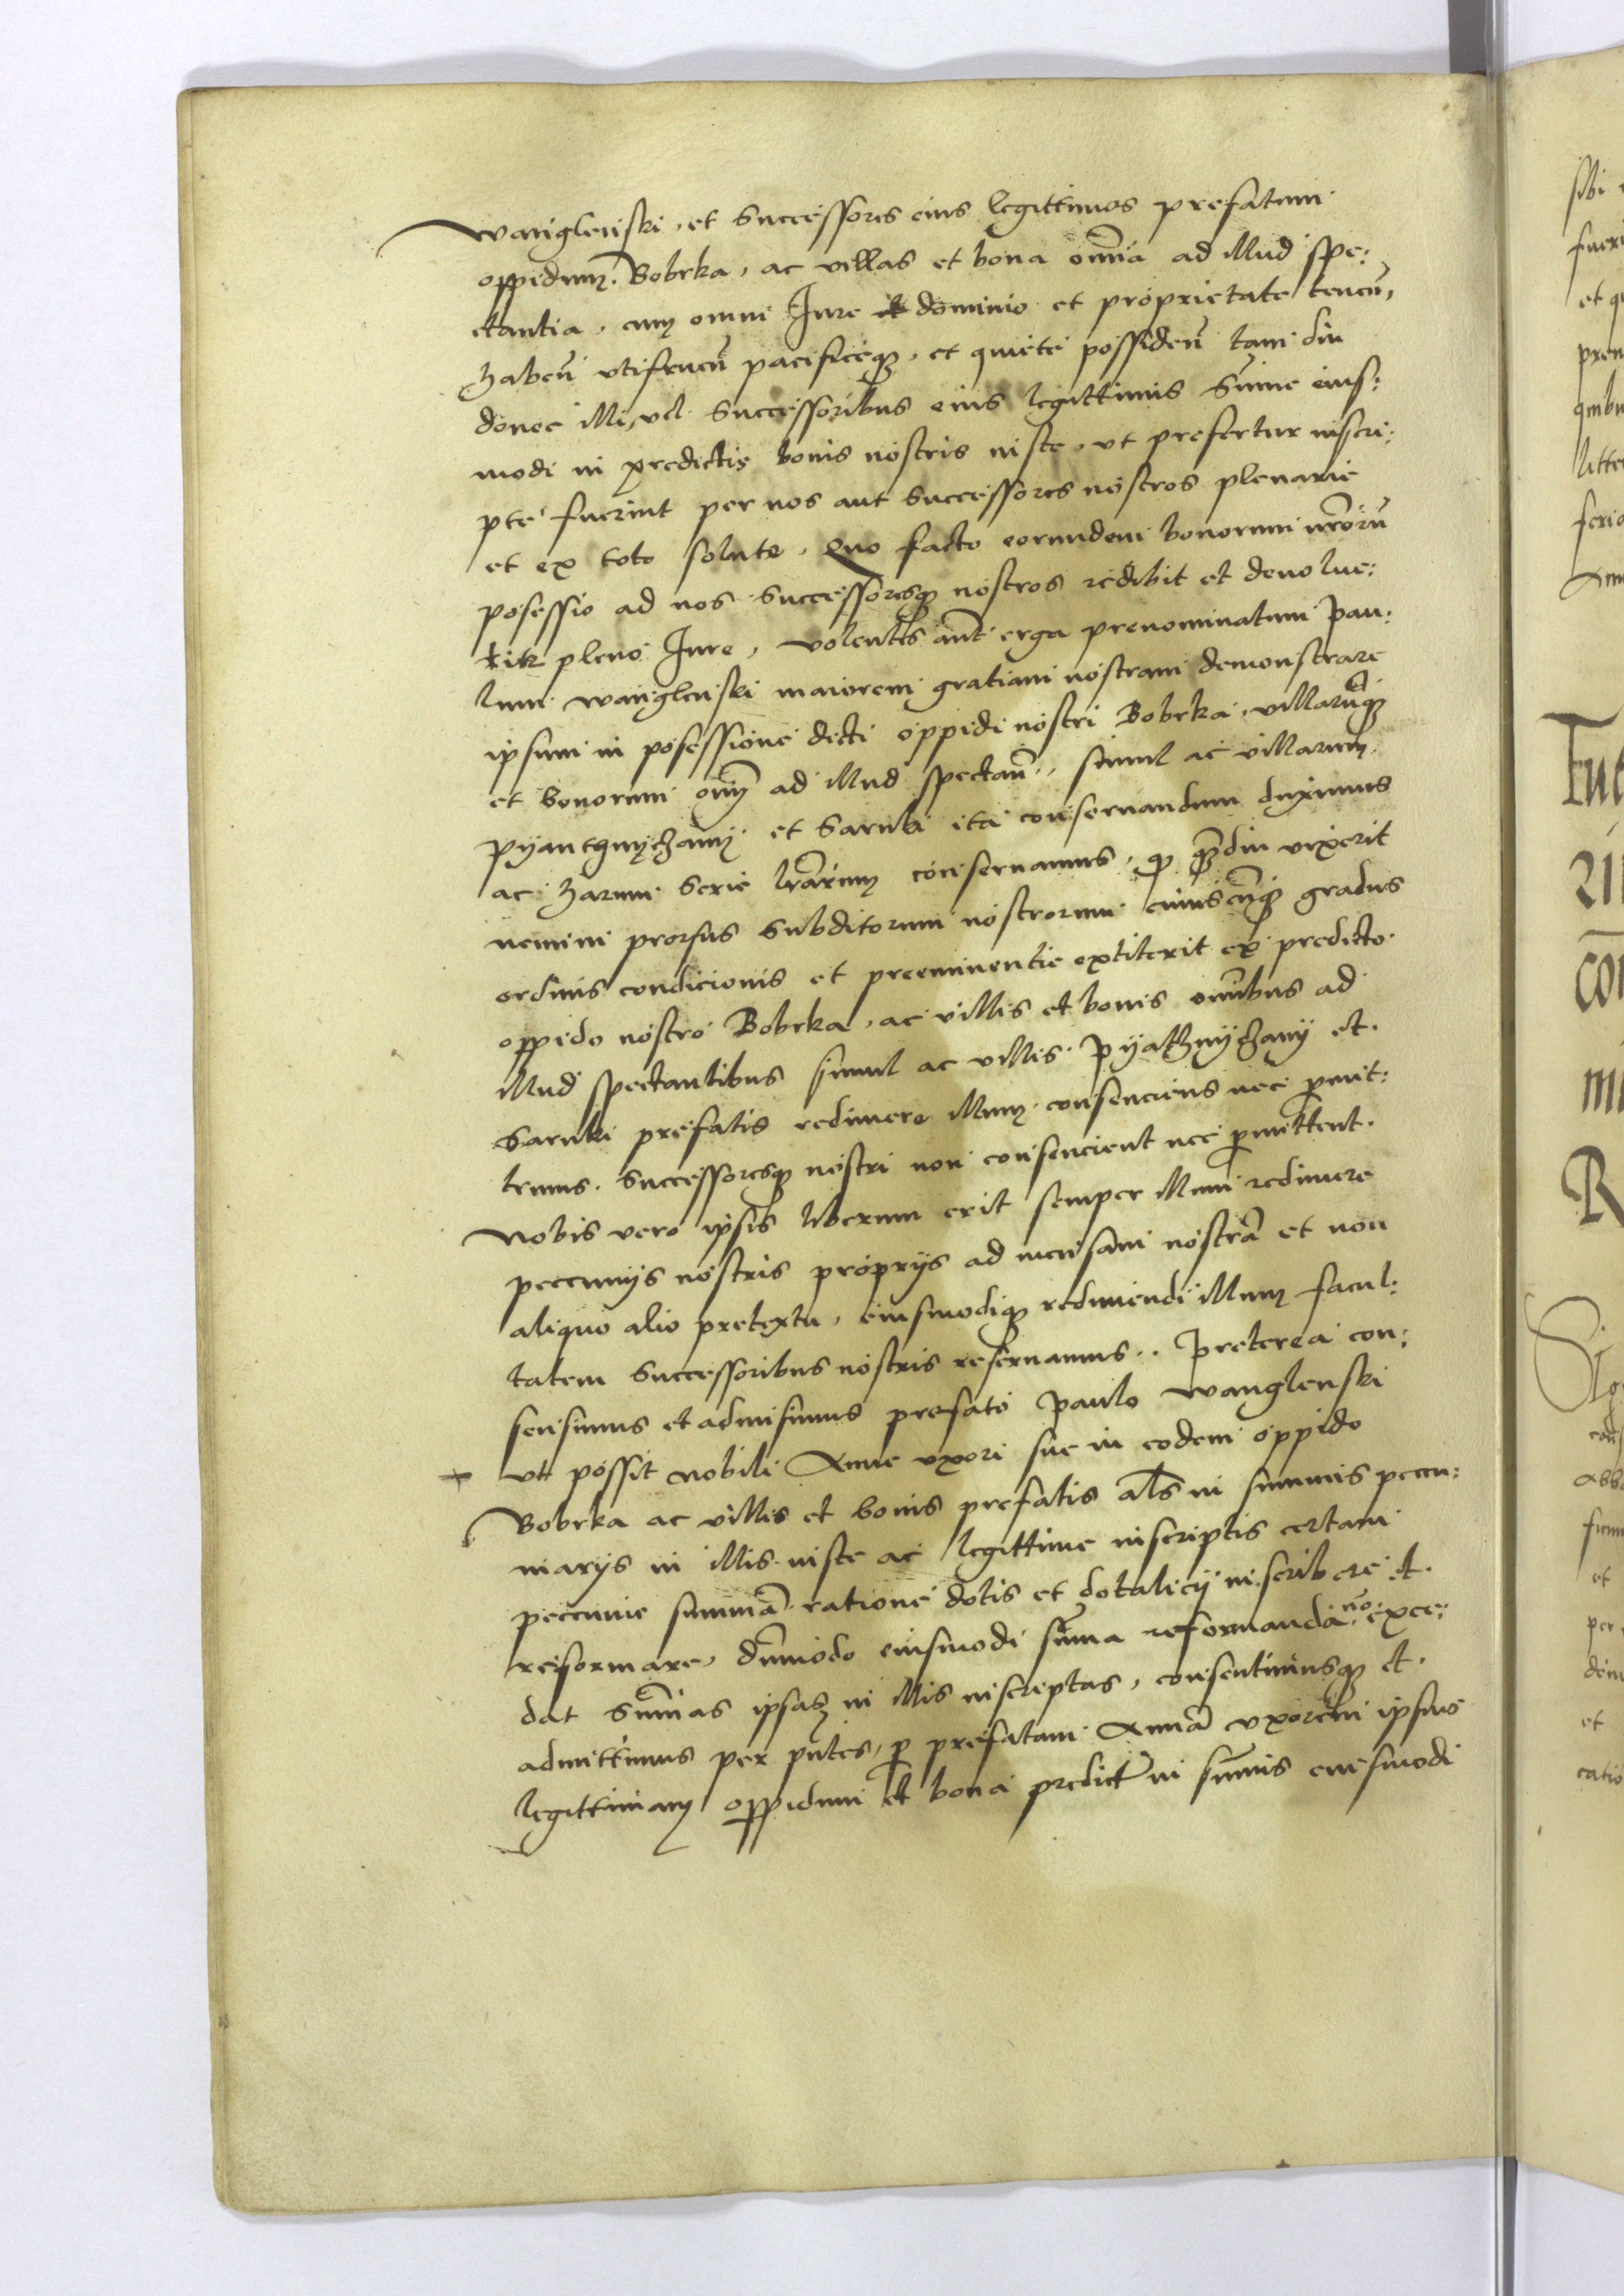 Wanglenski, et Successores eius legittimos prefatum
oppidum Bobrka, ac villas et bona om̄ia ad illud spe:
ctantia, cum omni Iure dominio et proprietate tenen̄,
haben̄ vtifruen̄ pacificeq; et quiete possiden̄ tam diu
donec illi, vel Successoribus eius legittimis Sum̄e eius:
modi in predictis bonis nostris iuste, vt prefertur inscri:
pte fuerint per nos aut Successores nostros plenarie
et ex toto solute. Quo facto eorundem bonorum nr̄orū
posessio ad nos Successoresq; nostros redibit et deuolue:
tur pleno Iure, volentes aūt erga prenominatum Pau:
lum Wanglenski maiorem gratiam nostram demonstrare
ipsum in posessione dicti oppidi nostri Bobrka, villarūq;
et bonorum om̄m ad illud spectan̄, simul ac villarum
Pyantgnyczany et Sarnki ita conseruandum duximus
ac harum Serie lr̄arum conseruamus, q̄ q̄diu vixerit
nemini prorsus Subditorum nostrorum cuiuscūq; gradus
ordinis condicionis et preeminentie extiterit ex predicto
oppido nostro Bobrka, ac villis et bonis om̄ibus ad
illud spectantibus simul ac villis Pyathnyczany et
Sarnki prefatis redimere illum consenciens nec p̄mit:
temus. Successoresq; nostri non consencient nec p̄mittent.
Nobis vero ipsis liberum erit semper illum redimere
pecunijs nostris proprijs ad mensam nostrā et non
aliquo alio pretextu, eiusmodiq; redimendi illum facul:
tatem Successoribus nostris reseruamus. Preterea con:
sensimus et admisimus prefato Paulo Wanglenski
+ vt possit nobili Anne vxori sue in eodem oppido
Bobrka ac villis et bonis prefatis als̄ in summis pecu:
niarijs in illis iuste ac legittime inscriptis certam
peccunie summā ratione dotis et dotalicij inscribere et
reformare, dum̄odo eiusmodi sum̄a reformanda no: exce:
dat Sum̄as ipsas in illis inscriptas, consentimusq; et
admittimus per pn̄tes, p̄ prefatam Annā vxorem ipsius
legittimam oppidum et bona predict̄ in sum̄is eiusmodi